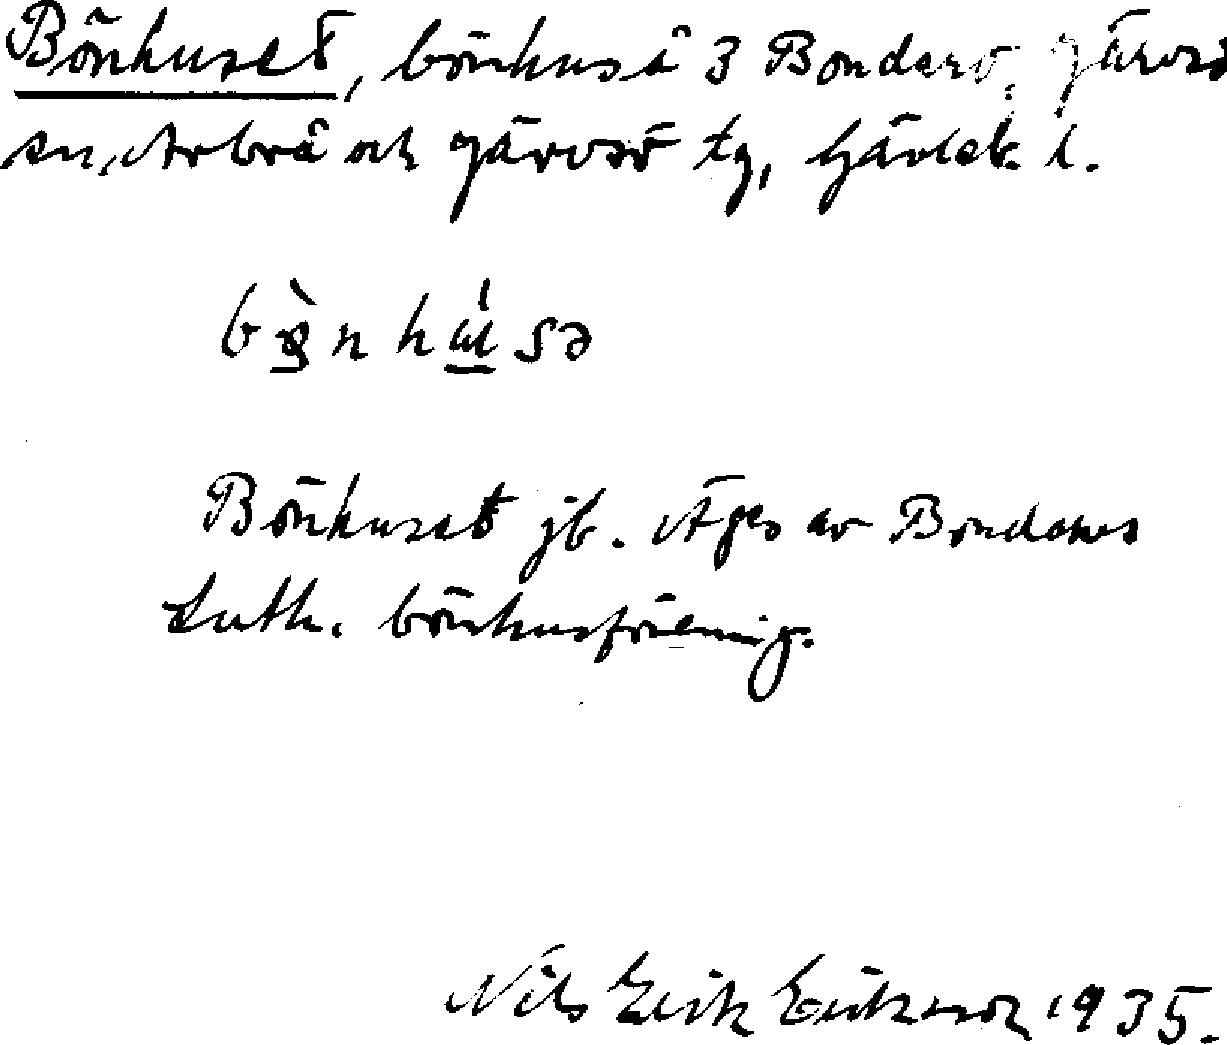 Bönhuset, bönhus å 3 Bondarv, Järvsö
sn, Arbrå och Järvsö tg, Gävleb. l.
bø̀nhúsə
Bönhuset jb. Äges av Bondarvs
Luth. bönhusförening.
Nils Erik Eriksson 1935.